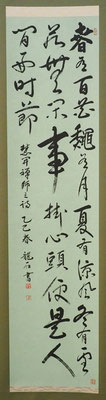 春有百花龝有月夏有涼風冬有雪
若無閑事掛心頭便是人
間好時節 慧開禪師之詩 乙巳春 龍石書